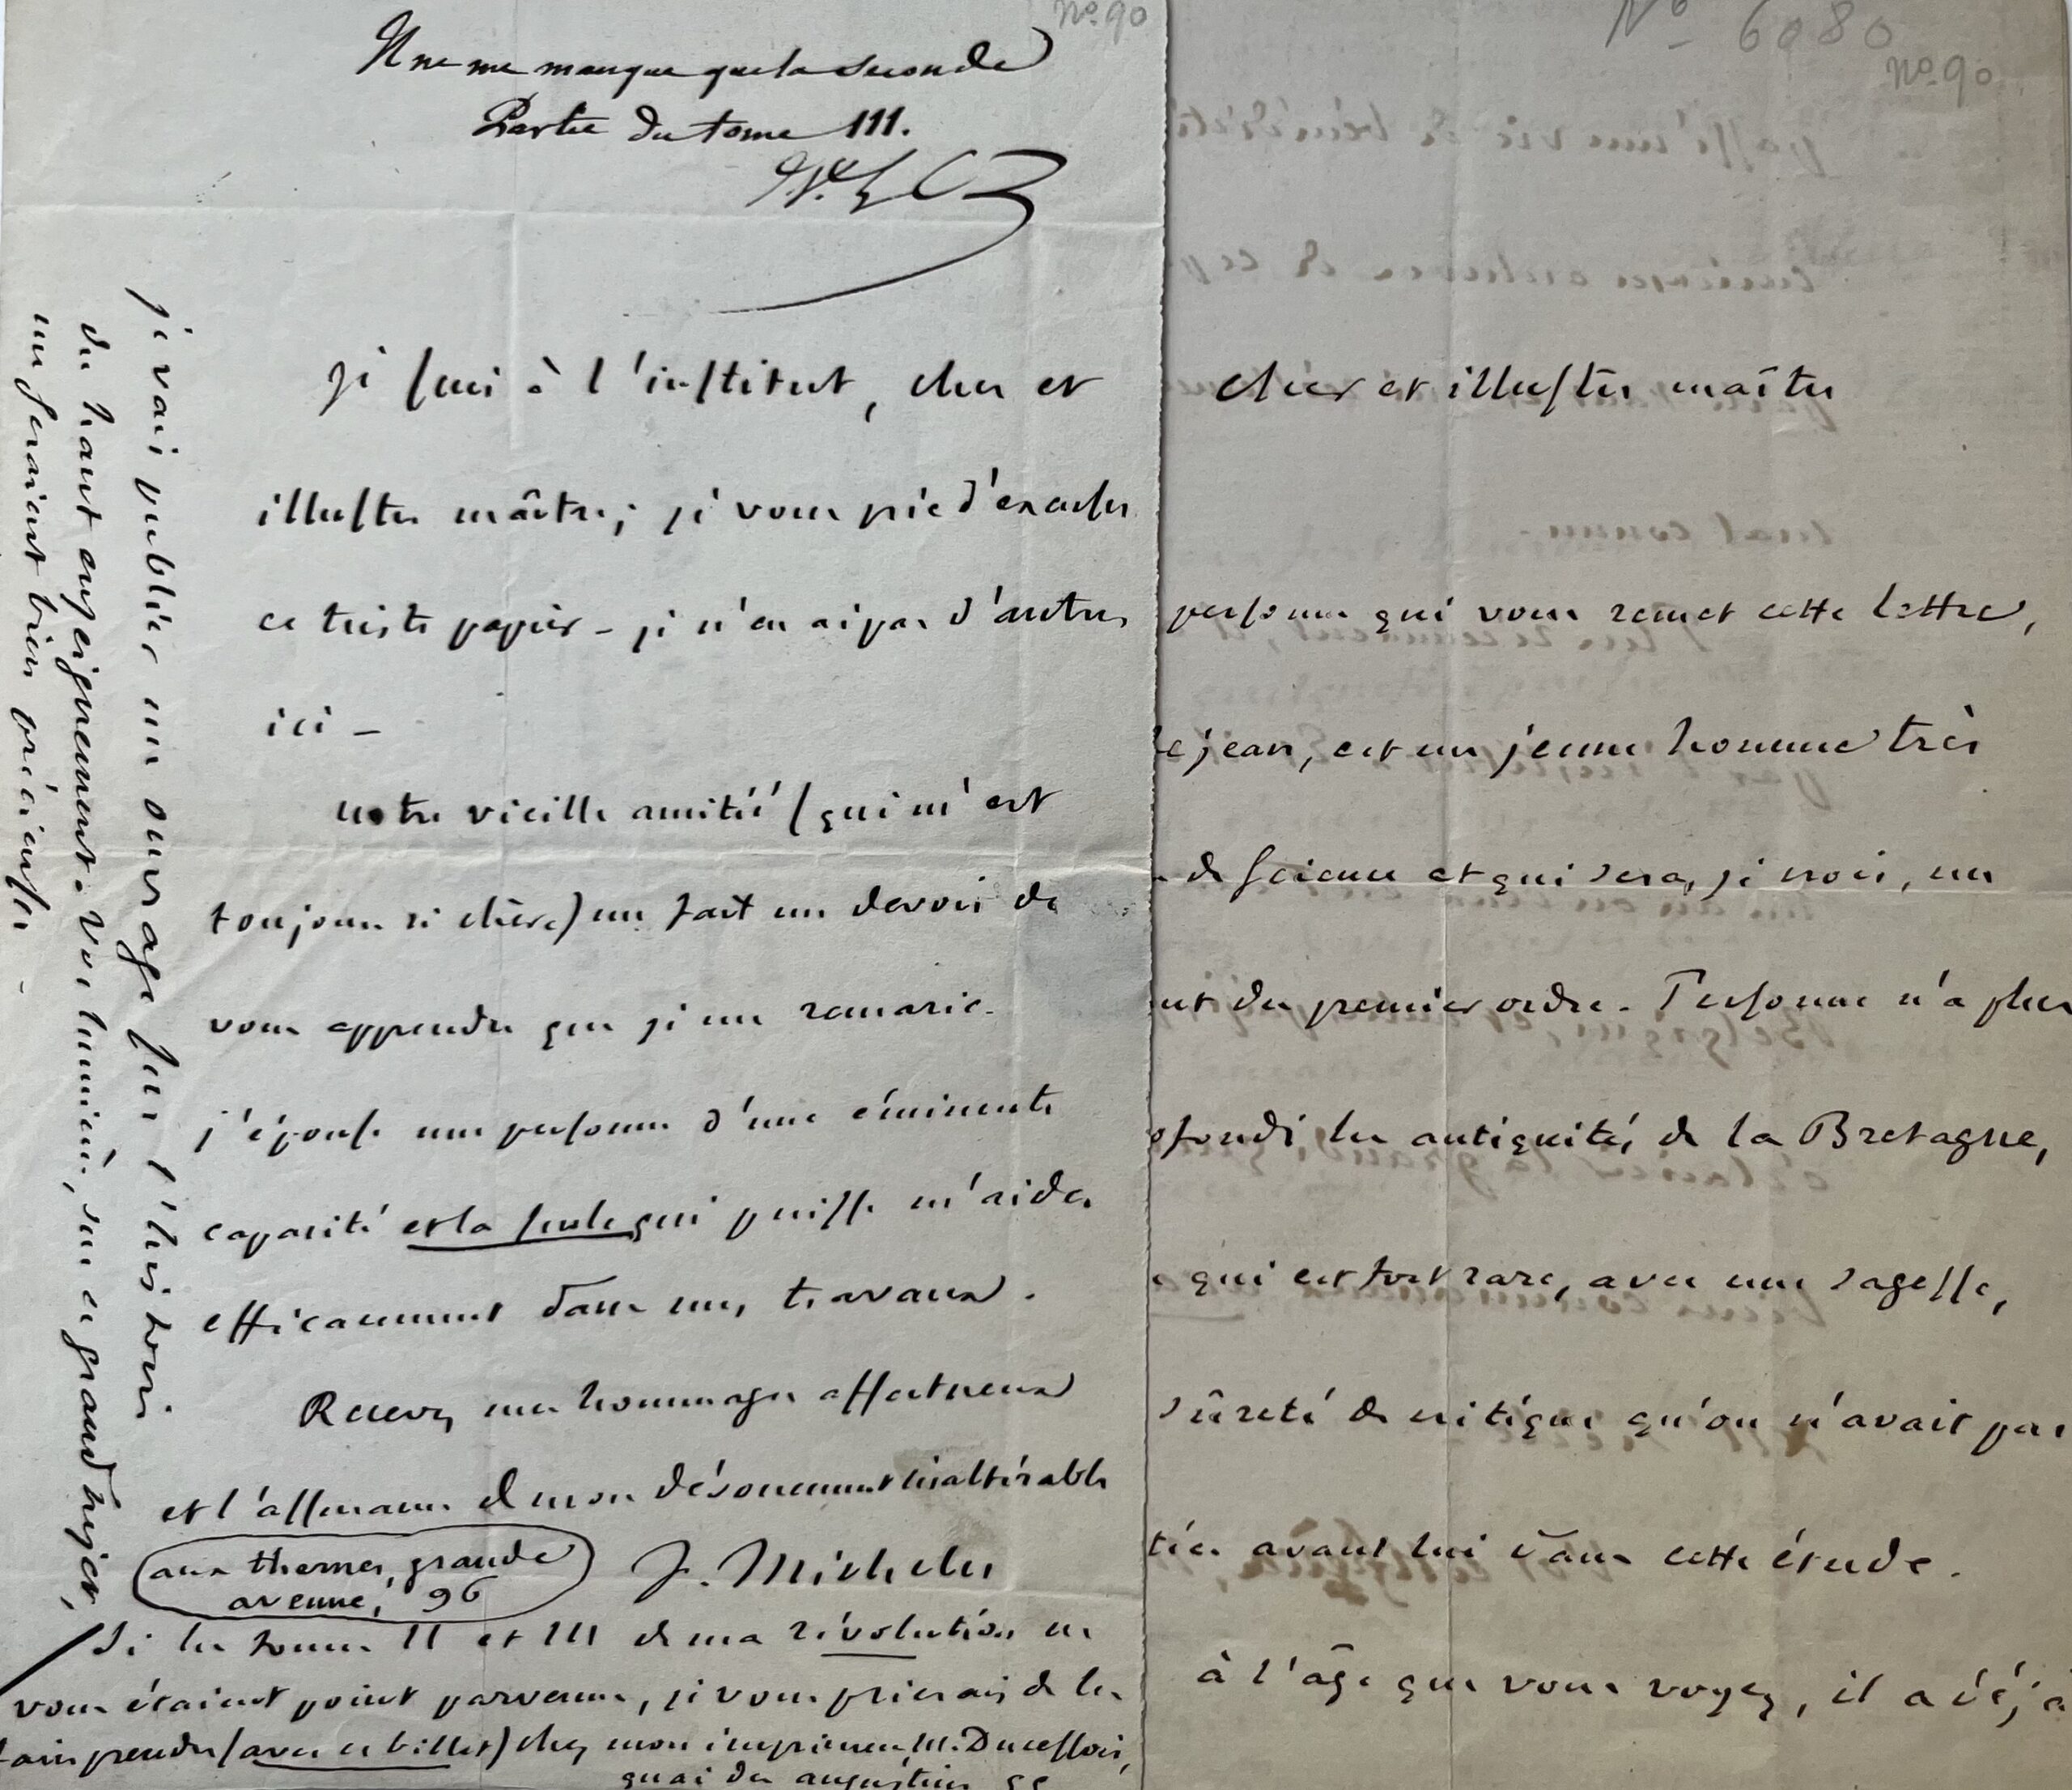 nº 90
Il ne me manque que la seconde
Partie du tome III.
je suis à l'institut, cher et
illustre maître; je vous prie d'excuser
ce triste papier – je n'en ai pas d'autre
ici –
notre vieille amitié (qui m'est
toujours si chère) me fait un devoir de
vous apprendre que je me remarie.
j'épouse une personne d'une éminente
capacité et la seule qui puisse m'aider
efficacement dans mes travaux.
Recevez mes hommages affectueux
et l'assurance de mon dévouement inaltérable
J. Michelet
aux thermes, grande
avenue, 96
Si les tomes II et III de ma révolution ne
vous étaient point parvenus, je vous prierais de les
faire prendre (avec ce billet) chez mon imprimeur, M. Ducessois,
quai des augustins 55
je vais publier un ouvrage sur l'histoire
du haut enseignement. Vos lumières, sur ce grand sujet,
me seraient bien précieuses –
Nº 6080
nº 90
cher et illustre maître
personne qui vous remet cette lettre,
lejean, est un jeune homme très
de science et qui sera, je crois, un
du premier ordre. Personne n'a plus
ofondi les antiquités de la Bretagne,
qui est fort rare, avec une sagesse,
sûreté de critique qu'on n'avait pas
avant lui dans cette étude.
à l'âge que vous voyez, il a déjà